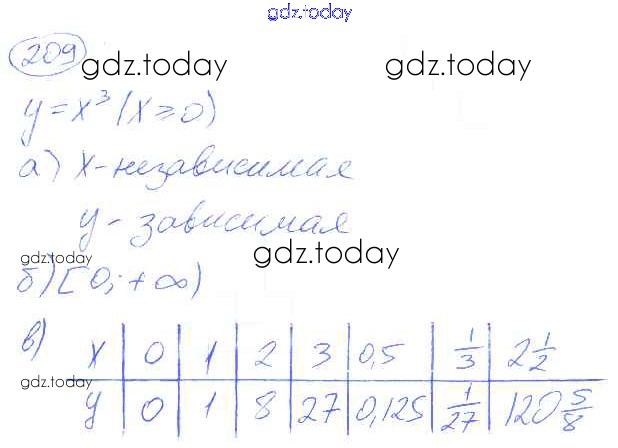 gdz.today
209
gdz.today gdz.today
y = x³ (x ≥ 0)
а) x - независимая
y - зависимая
gdz.today gdz.today
б) [0; +∞)
в) x | 0 | 1 | 2 | 3 | 0,5 | 1/3 | 2 1/2
gdz.today gdz.today
y | 0 | 1 | 8 | 27 | 0,125 | 1/27 | 120 5/8